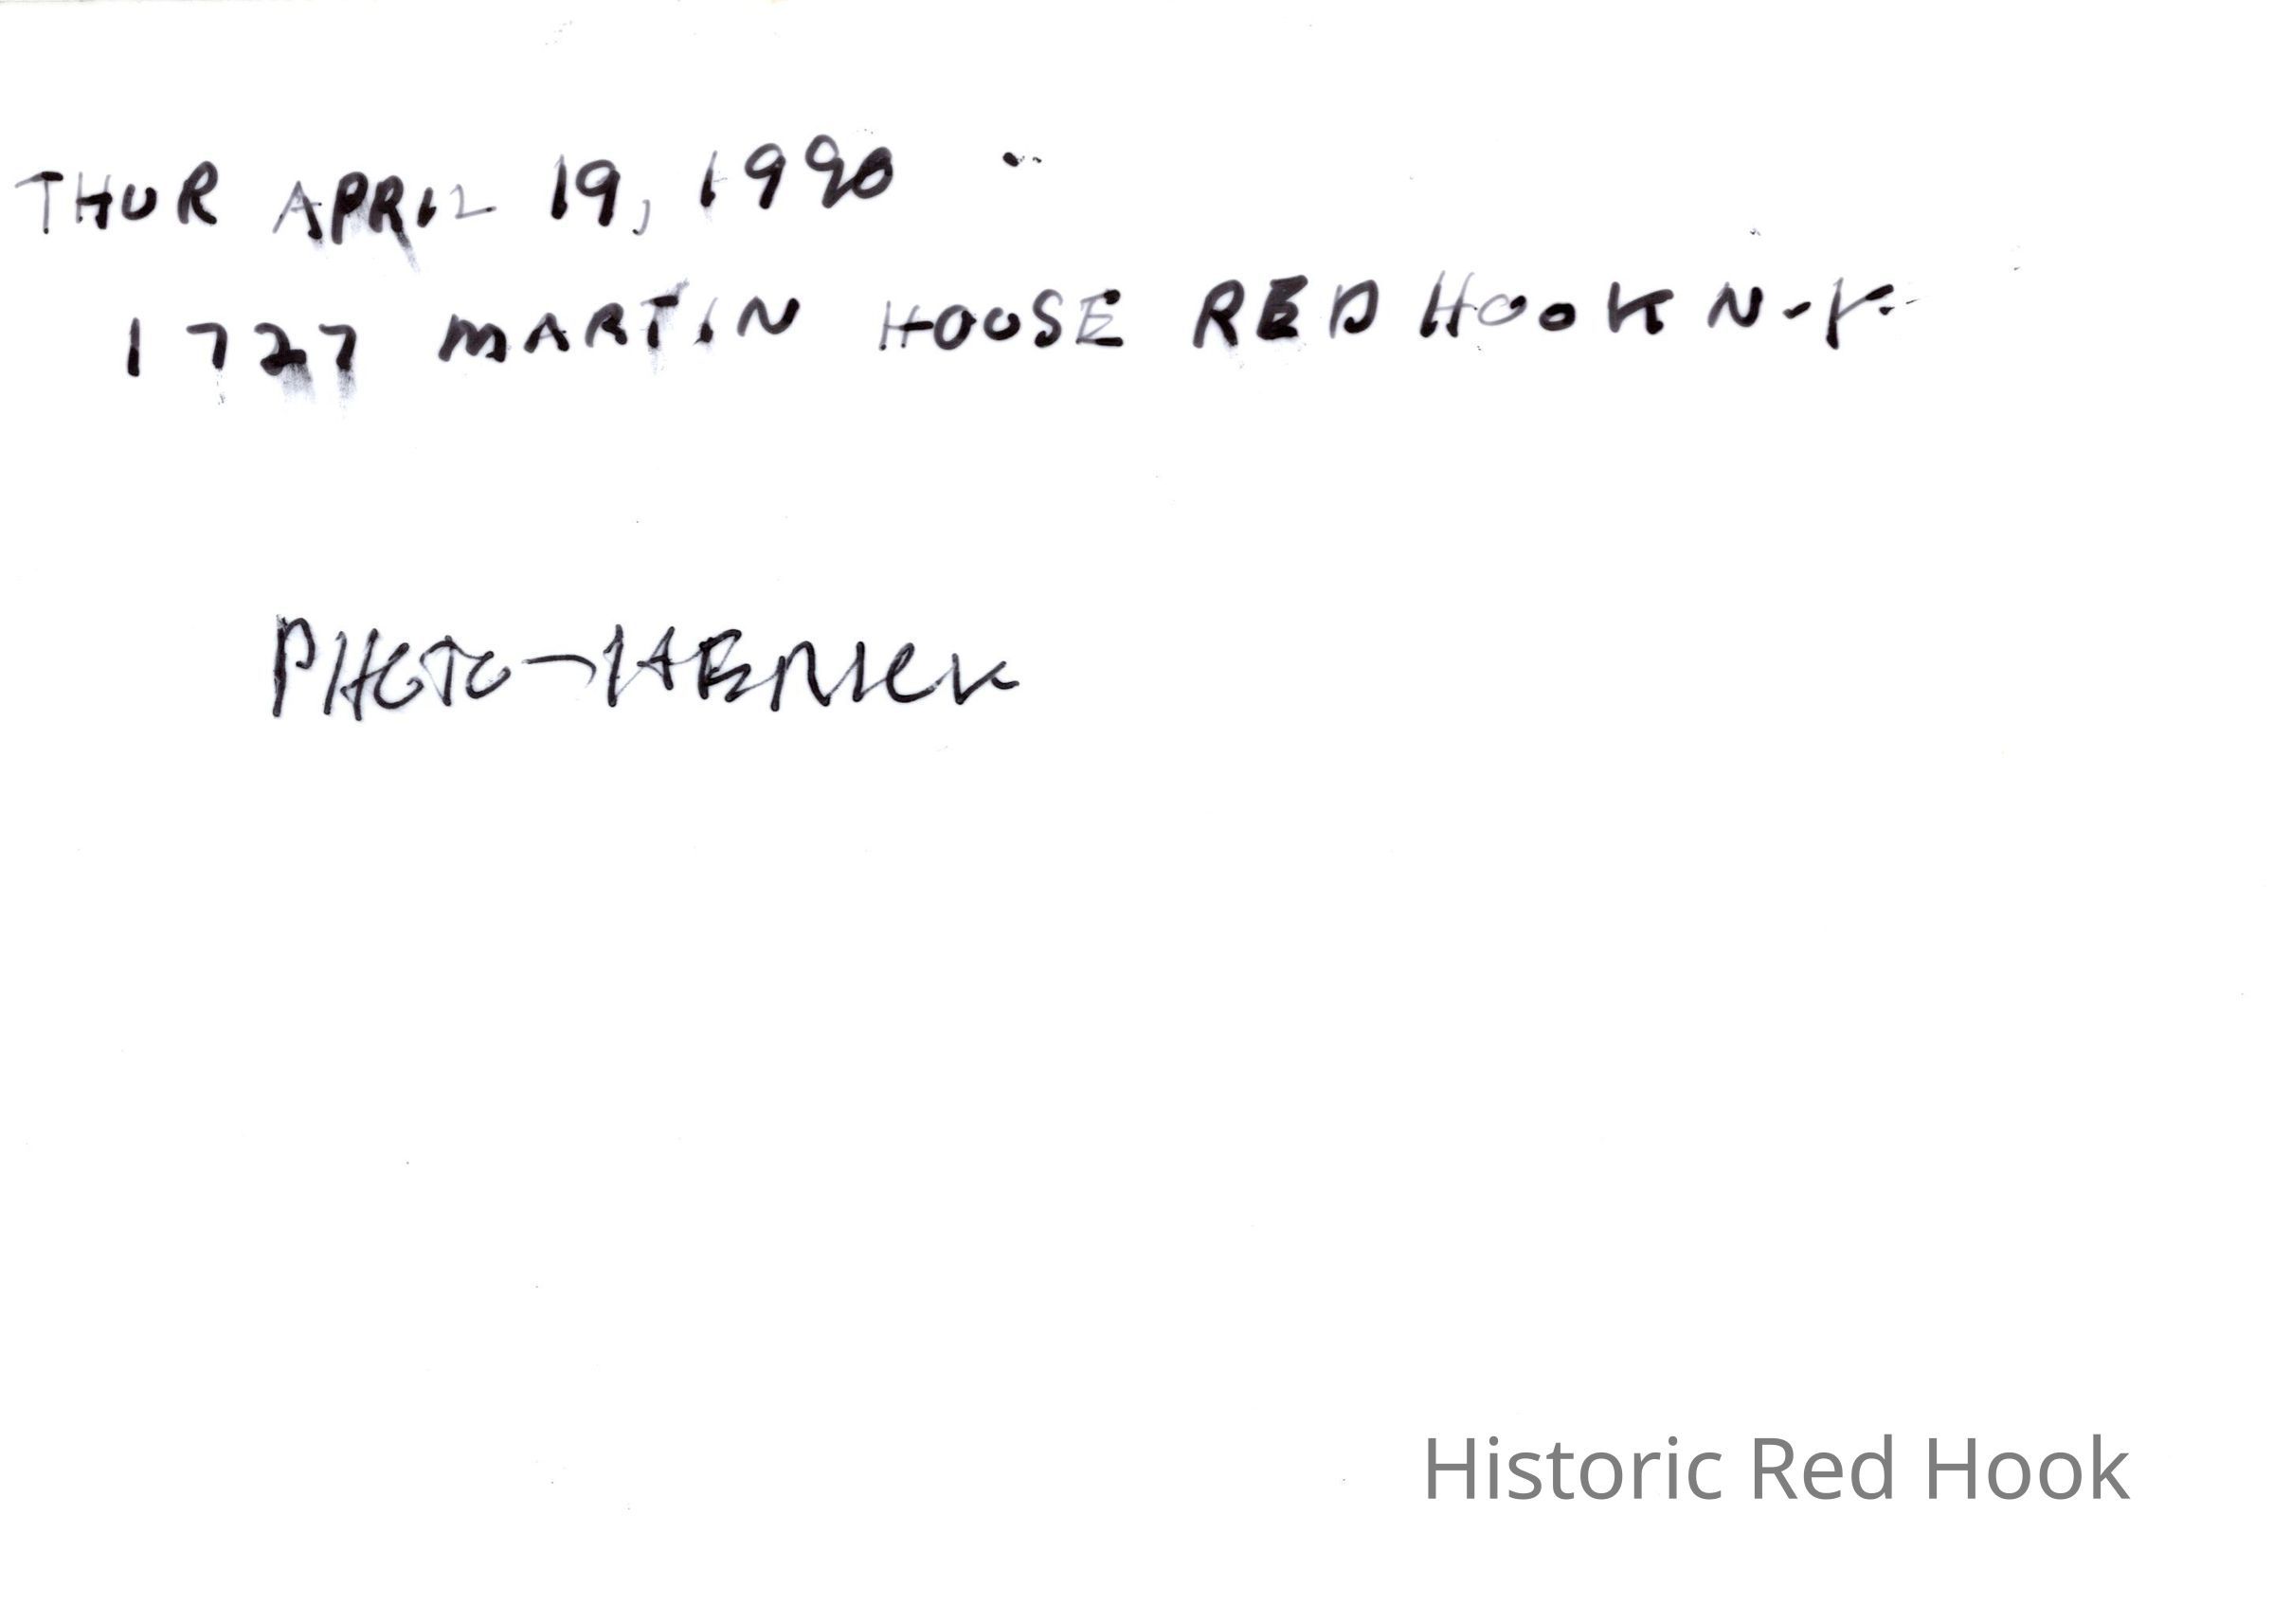 THUR APRIL 19, 1990
1727 MARTIN HOUSE RED HOOK N.Y.
PHOTO-
Historic Red Hook